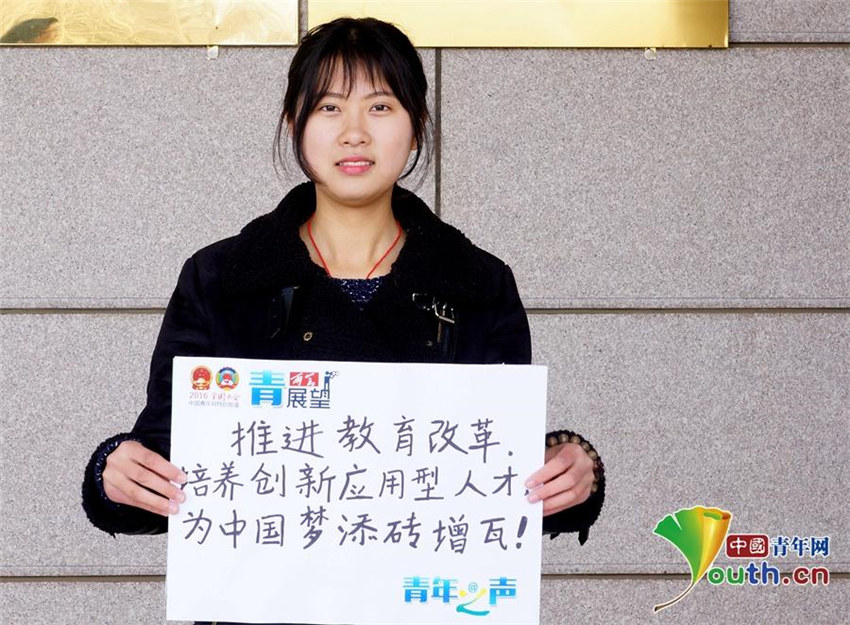 2016 全国两会
青
展望
推进教育改革.
培养创新应用型人才,
为中国梦添砖增瓦!
青年之声
@
中國青年网
Youth.cn